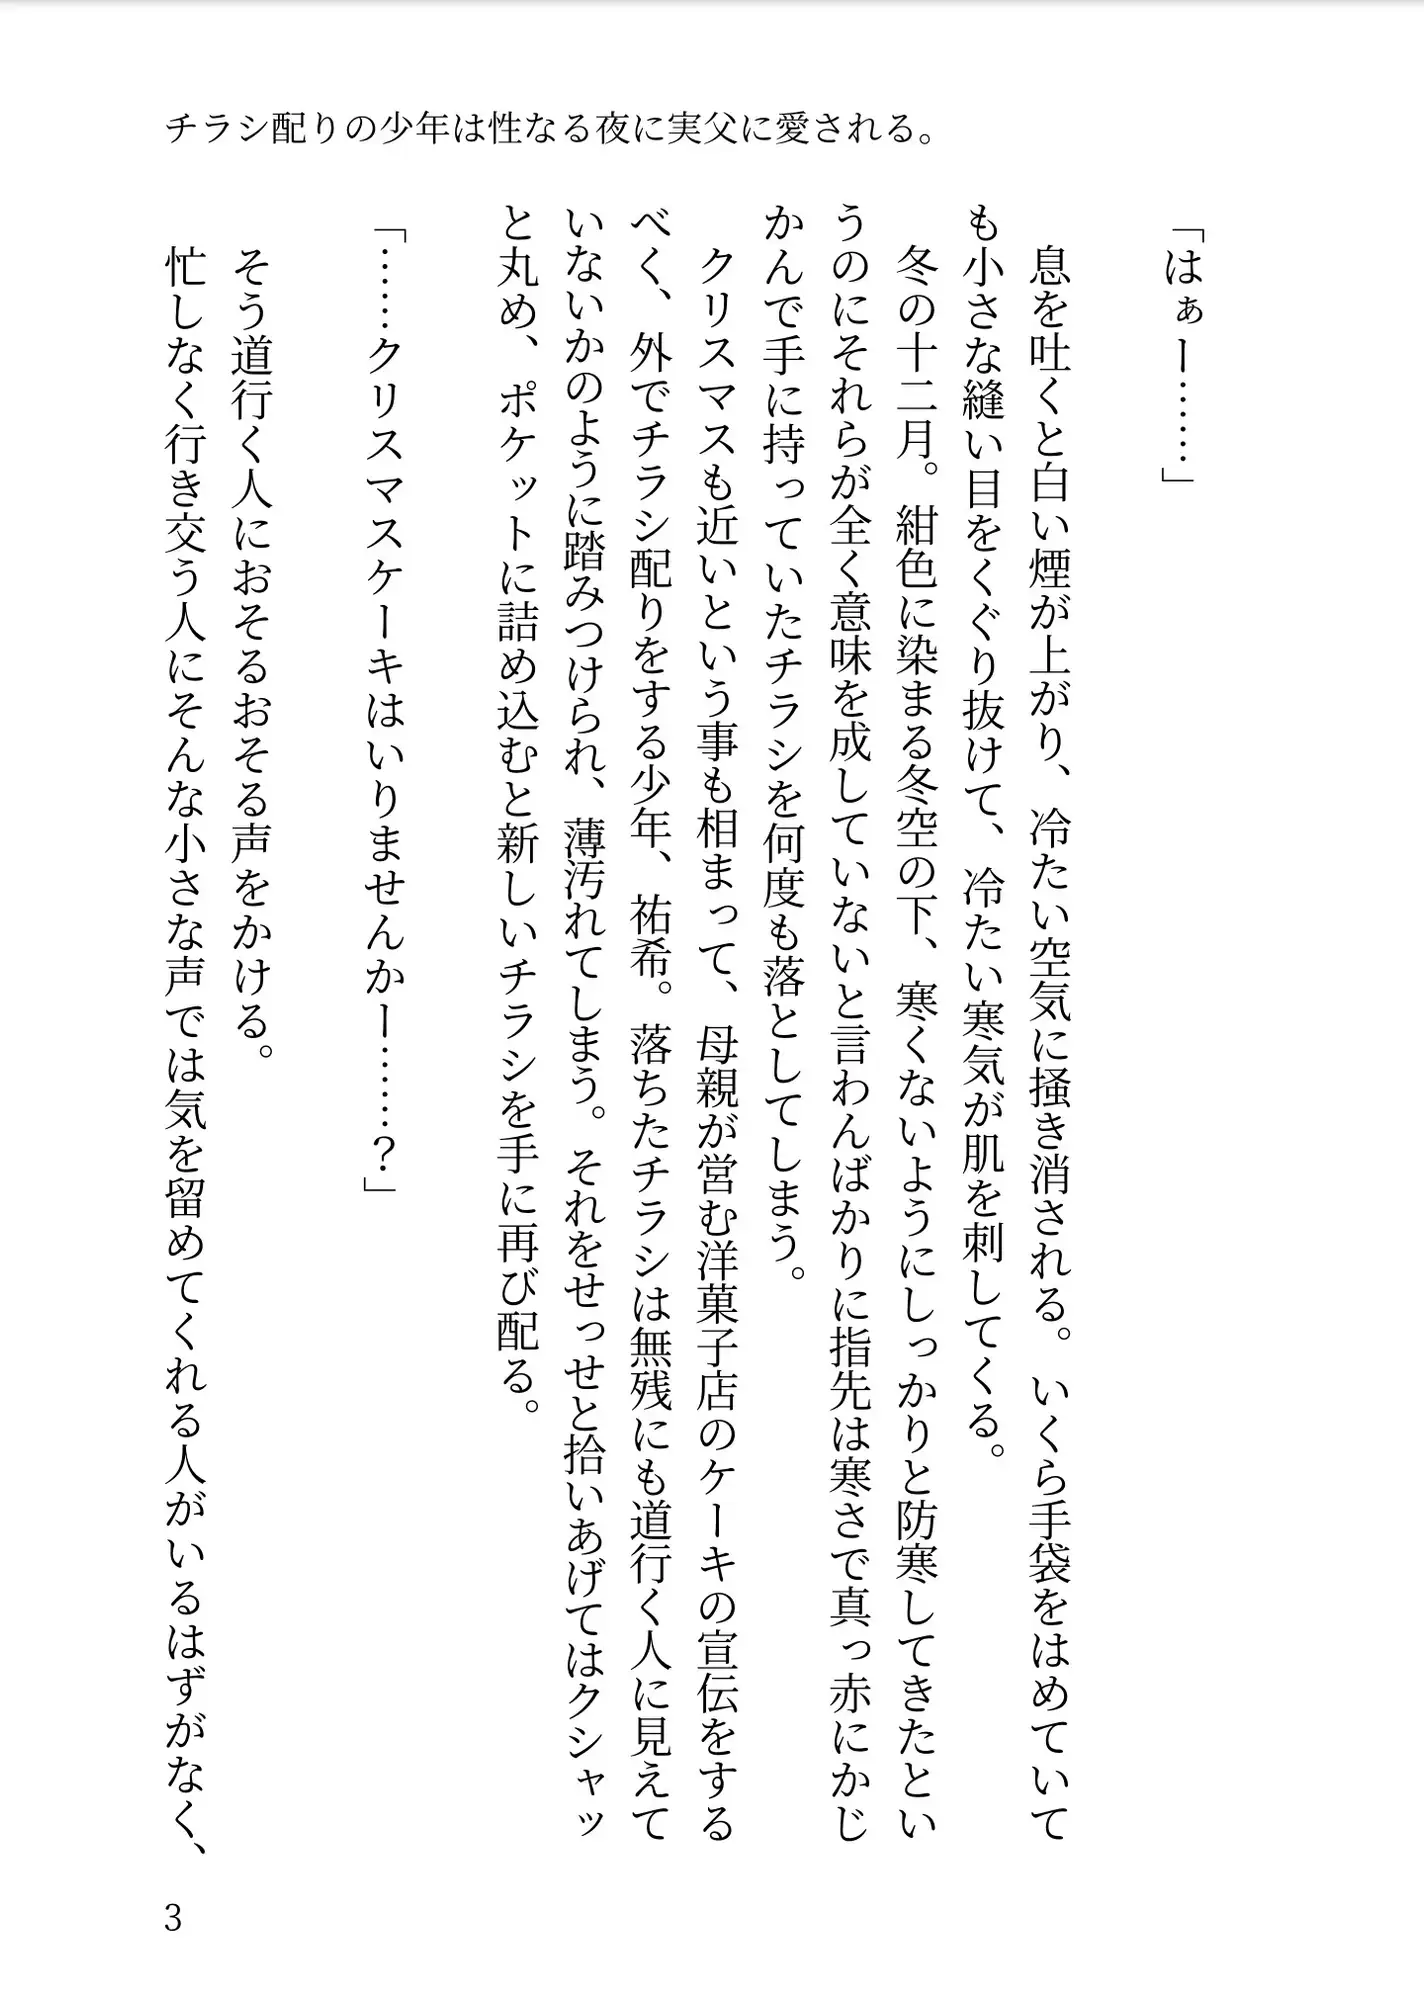 チラシ配りの少年は性なる夜に実父に愛される。
「はぁー……」
息を吐くと白い煙が上がり、冷たい空気に掻き消される。いくら手袋をはめていて
も小さな縫い目をくぐり抜けて、冷たい寒気が肌を刺してくる。
冬の十二月。紺色に染まる冬空の下、寒くないようにしっかりと防寒してきたとい
うのにそれらが全く意味を成していないと言わんばかりに指先は寒さで真っ赤にかじ
かんで手に持っていたチラシを何度も落としてしまう。
クリスマスも近いという事も相まって、母親が営む洋菓子店のケーキの宣伝をする
べく、外でチラシ配りをする少年、祐希。落ちたチラシは無残にも道行く人に見えて
いないかのように踏みつけられ、薄汚れてしまう。それをせっせと拾いあげてはクシャッ
と丸め、ポケットに詰め込むと新しいチラシを手に再び配る。
「……クリスマスケーキはいりませんかー……？」
そう道行く人におそるおそる声をかける。
忙しなく行き交う人にそんな小さな声では気を留めてくれる人がいるはずがなく、
3